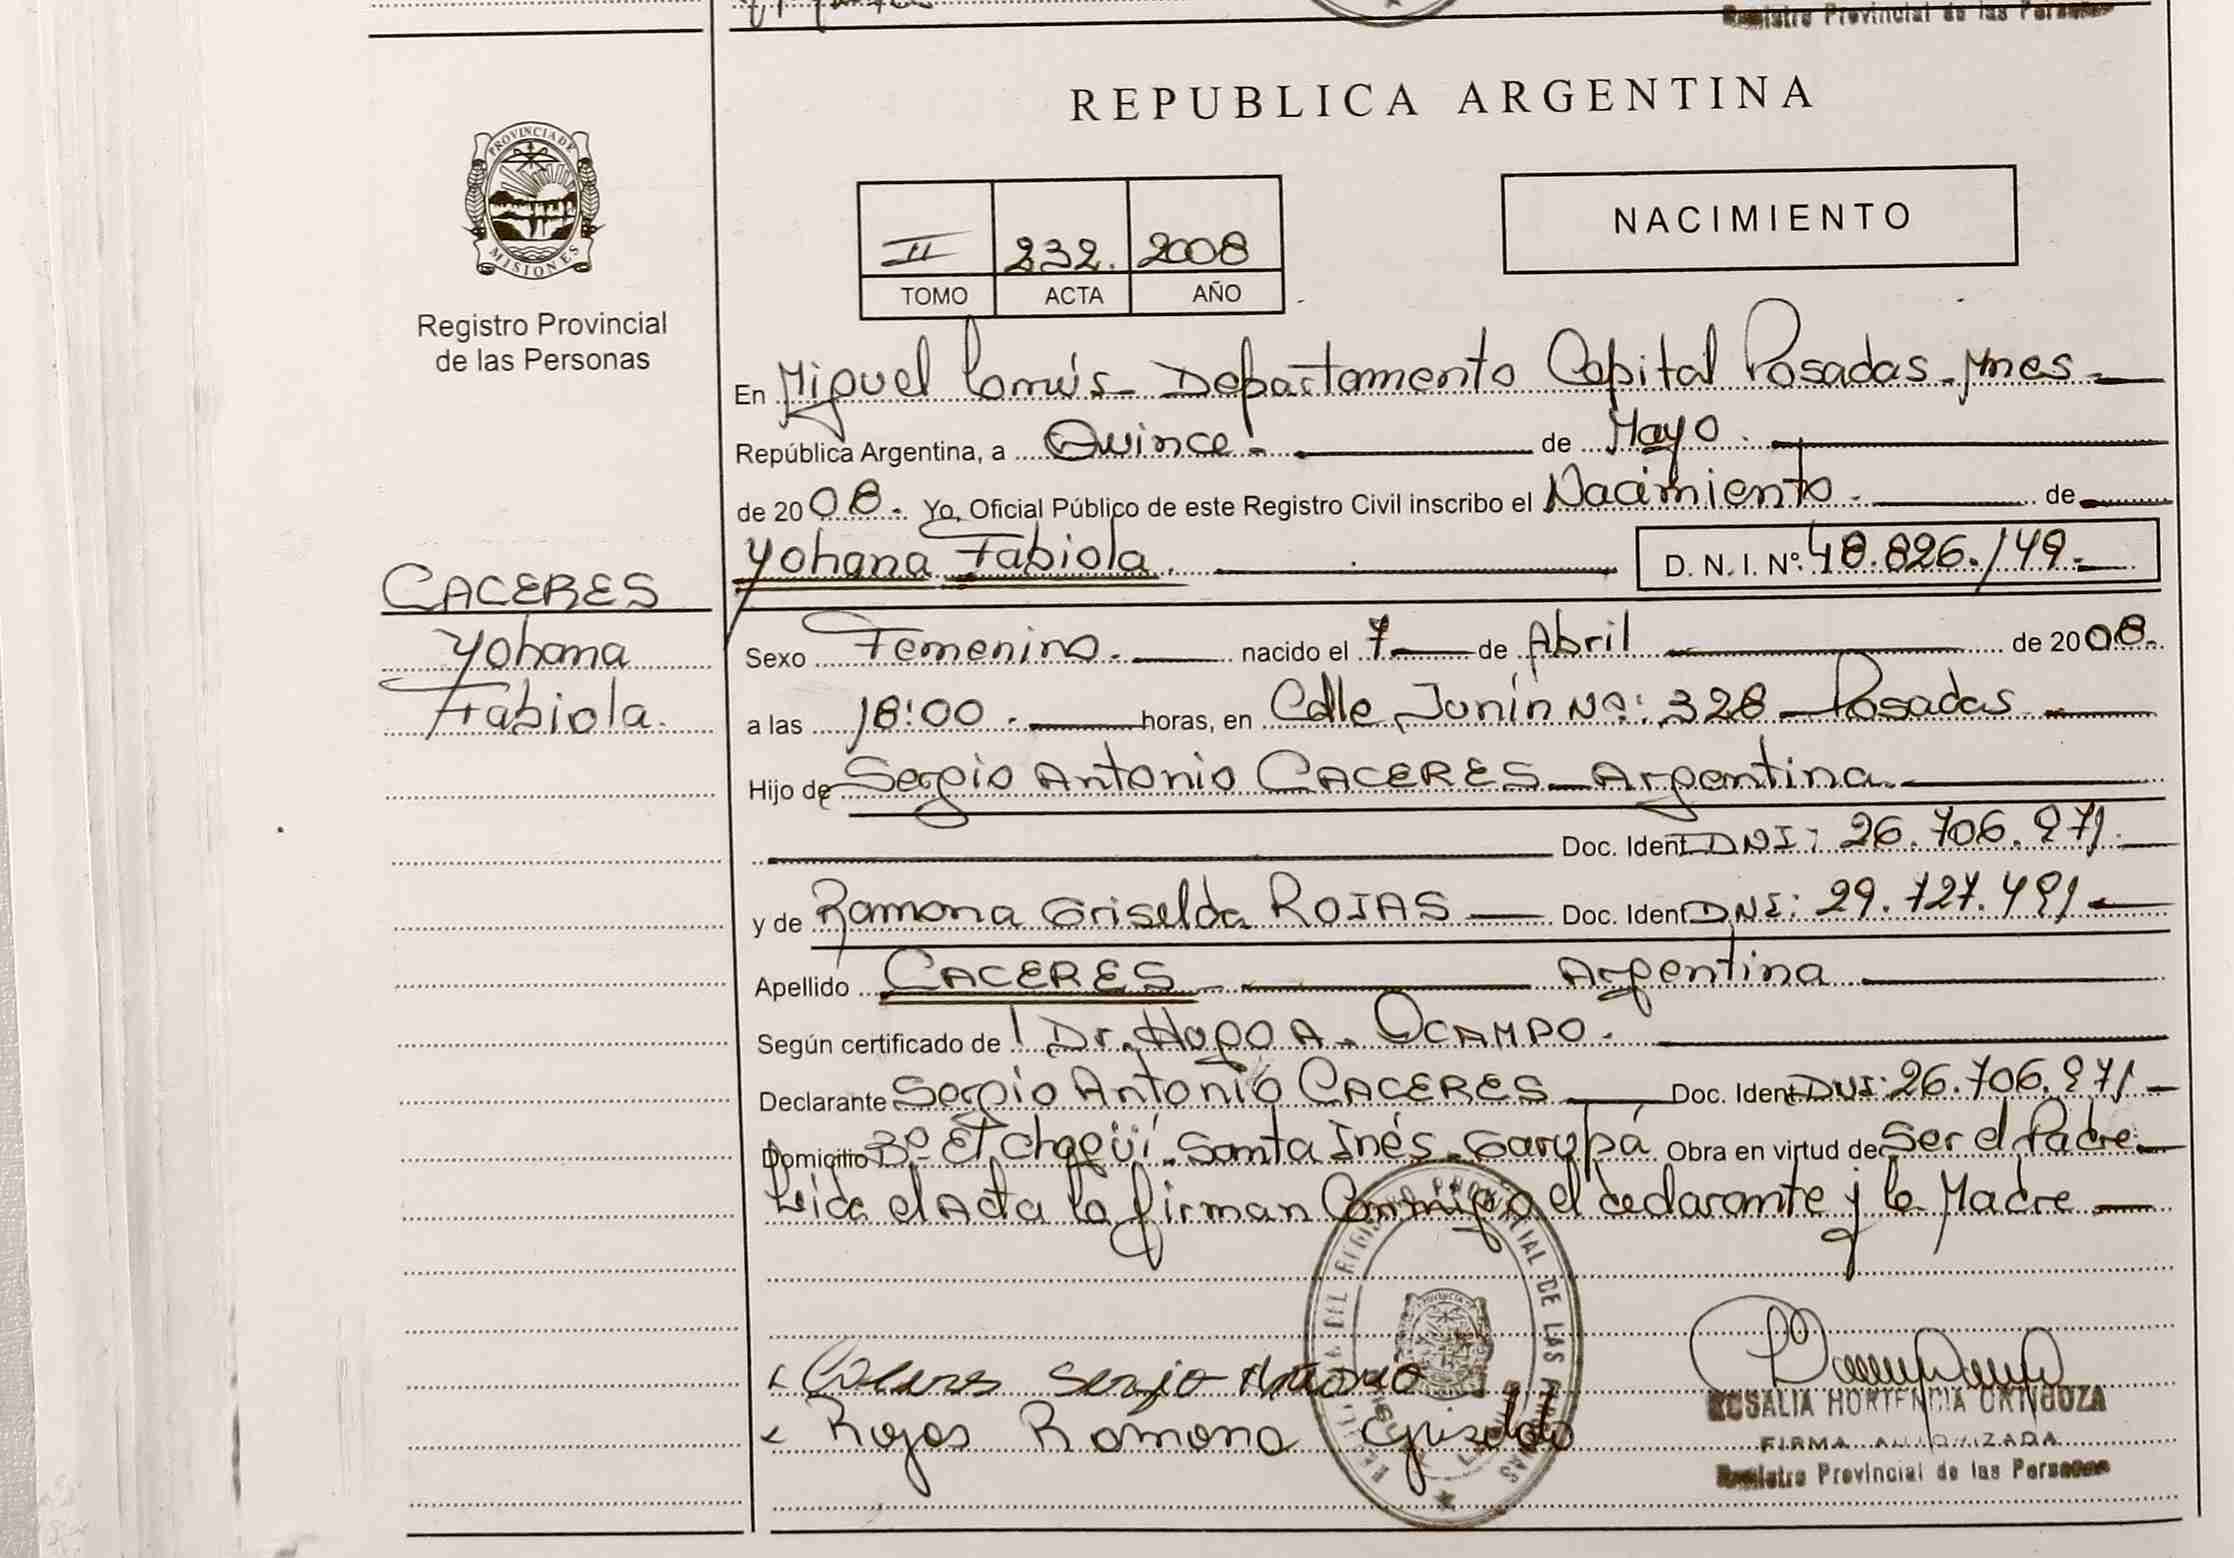 Registro Provincial de las Personas
REPUBLICA ARGENTINA
PROVINCIA DE
MISIONES
Registro Provincial
de las Personas
II 232. 2008
TOMO ACTA AÑO
NACIMIENTO
En Miguel Lanús - Departamento Capital Posadas - Mnes -
República Argentina, a Quince. de Mayo.
de 2008. Yo, Oficial Público de este Registro Civil inscribo el Nacimiento. de
Yohana Fabiola. D. N. I. Nº: 48.826.149.-
CACERES
Yohana
Fabiola.
Sexo Femenino. nacido el 7 de Abril de 2008.
a las 18:00. horas, en Calle Junín Nº: 328 - Posadas
Hijo de Sergio Antonio CACERES - Argentina.
Doc. Ident. DNI: 26.706.271.
y de Ramona Griselda ROJAS Doc. Ident. DNI: 29.727.491
Apellido CACERES Argentina
Según certificado de Dr. Hugo A. OCAMPO.
Declarante Sergio Antonio CACERES Doc. Ident. DNI: 26.706.271
Domicilio Bº Etchagüí. Santa Inés. Garupá Obra en virtud de Ser el Padre
Leida el Acta la firman Conmigo el declarante y la Madre
REGISTRO PROVINCIAL DE LAS PERSONAS
Caceres Sergio Antonio
Rojas Ramona Griselda
ROSALIA HORTENCIA ORTIGOZA
FIRMA AUTORIZADA
Registro Provincial de las Personas